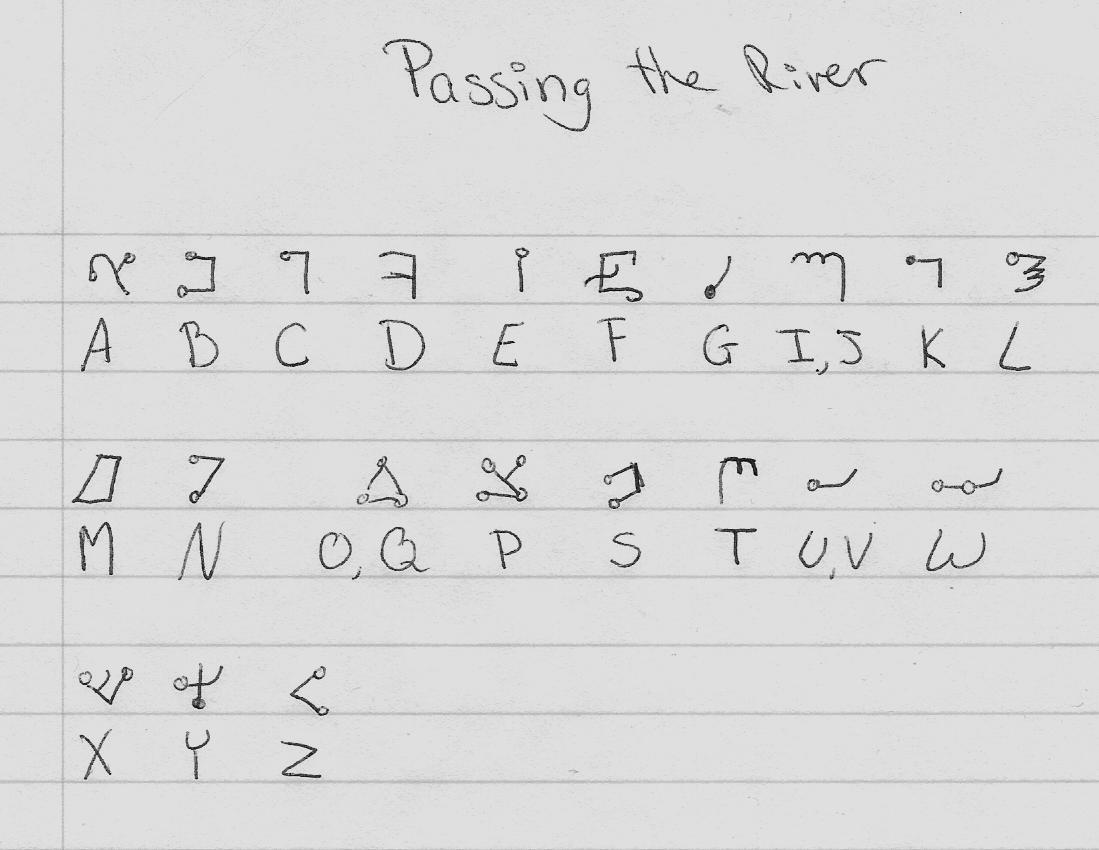 Passing the River
A B C D E F G I,J K L
M N O,Q P S T U,V W
X Y Z